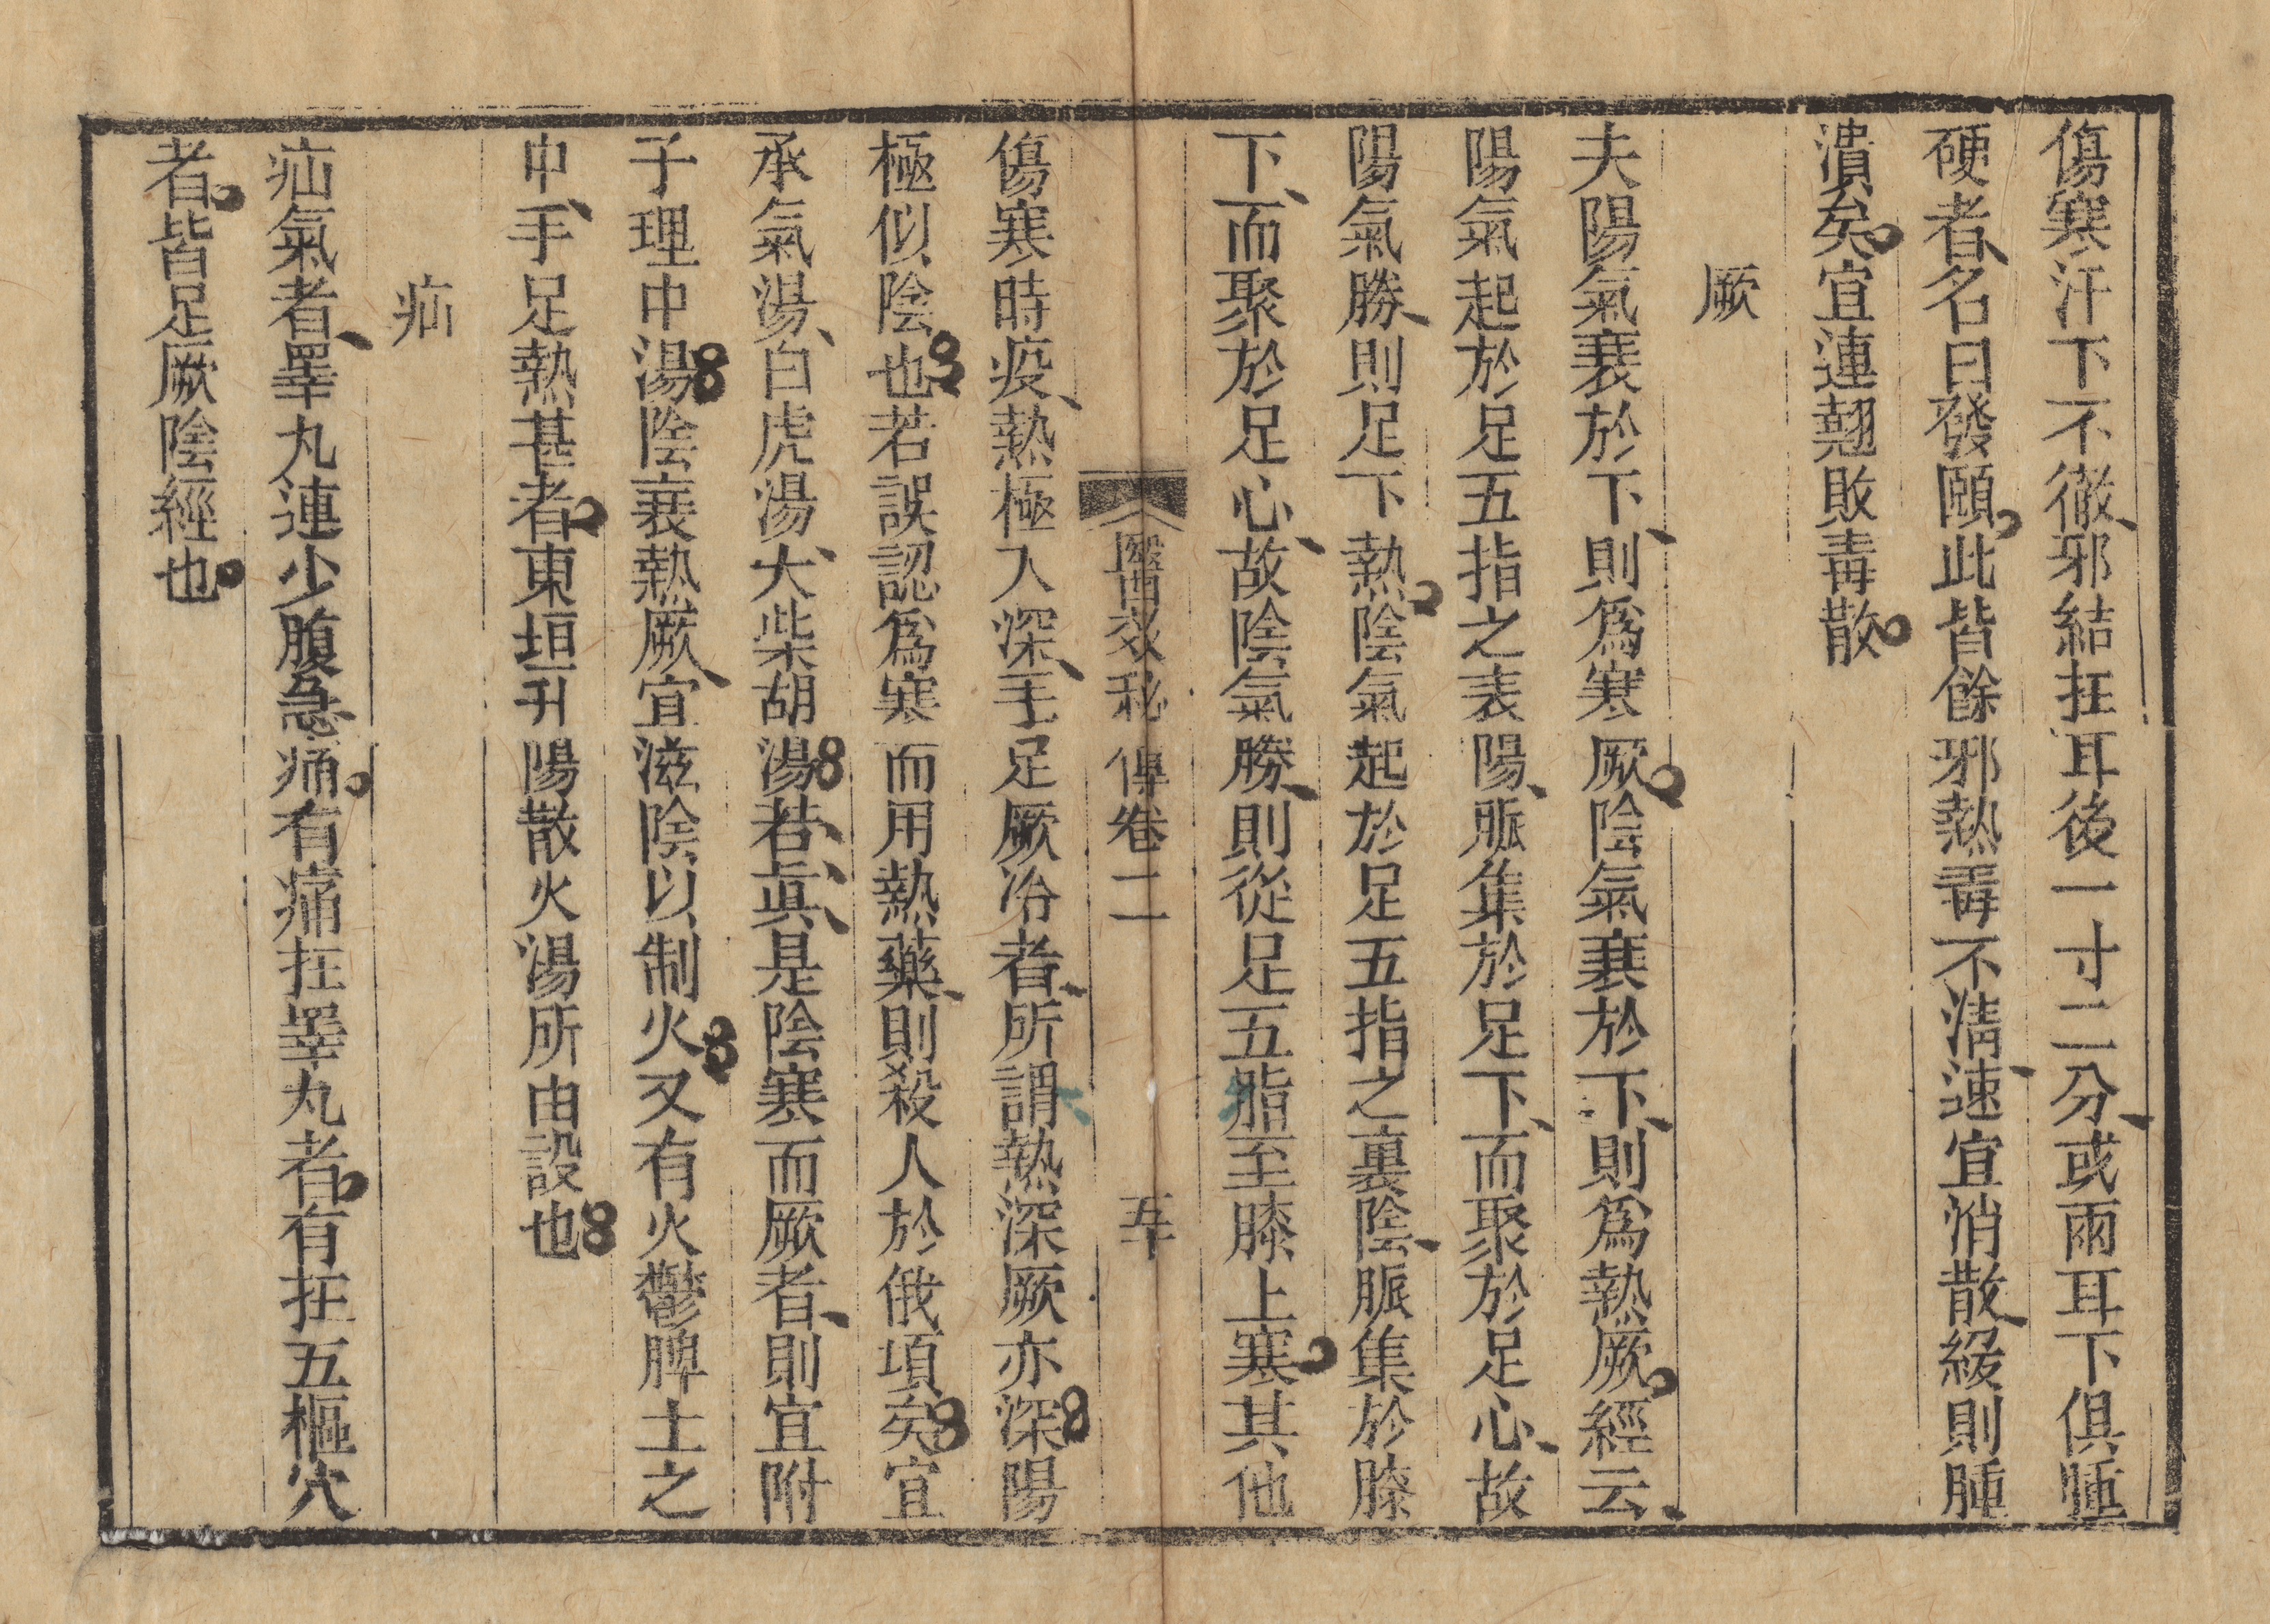 傷寒汗下不徹邪結在耳後一寸二分或兩耳下俱腫
硬者名曰發頤此皆餘邪熱毒不淸速宜消散緩則腫
潰矣宜連翹敗毒散
厥
夫陽氣衰於下則爲寒厥陰氣衰於下則爲熱厥經云
陽氣起於足五指之表陽脈集於足下而聚於足心故
陽氣勝則足下熱陰氣起於足五指之裏陰脈集於膝
下而聚於足心故陰氣勝則從足五脂至膝上寒其他
醫效秘傳卷二 五十
傷寒時疫熱極入深手足厥冷者所謂熱深厥亦深陽
極似陰也若誤認爲寒而用熱藥則殺人於俄頃矣宜
承氣湯白虎湯大柴胡湯若眞是陰寒而厥者則宜附
子理中湯陰衰熱厥宜滋陰以制火又有火鬱脾土之
中手足熱甚者東垣升陽散火湯所由設也
疝
疝氣者睪丸連少腹急痛有痛在睪丸者有在五樞穴
者皆足厥陰經也